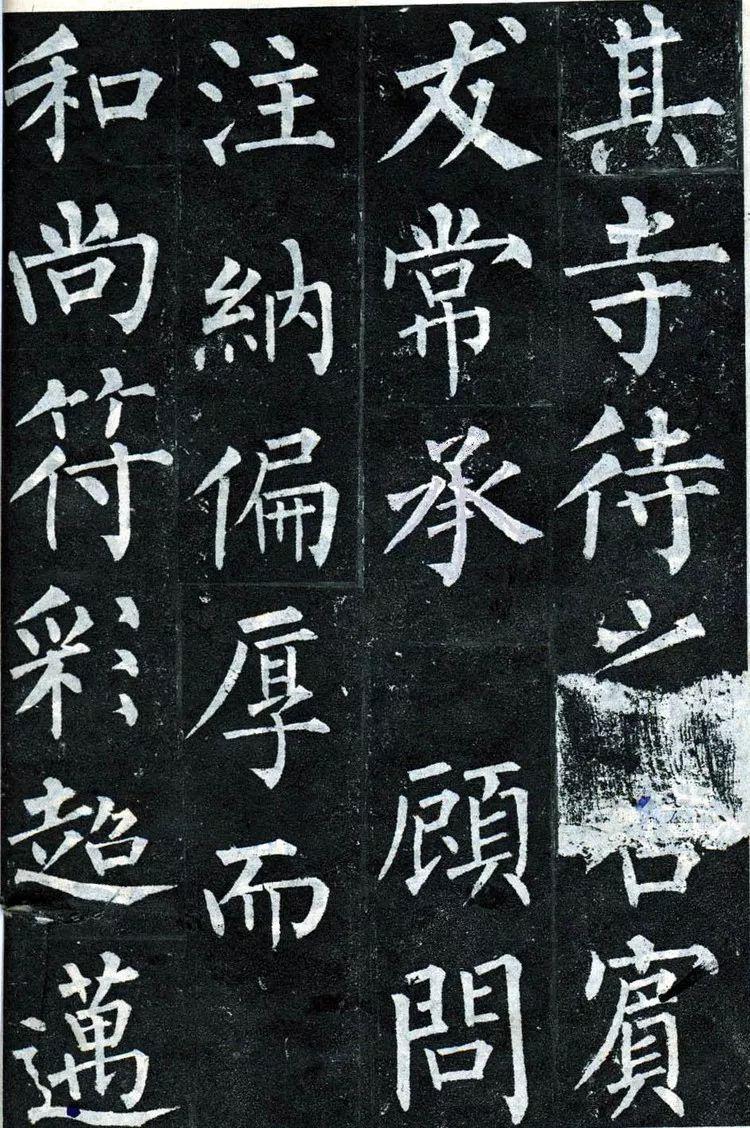 其寺待之賓
友常承顧問
注納偏厚而
和尚符彩超邁